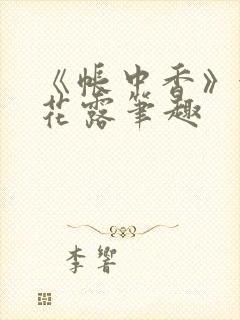 《帐中香》
花露笔趣
李响